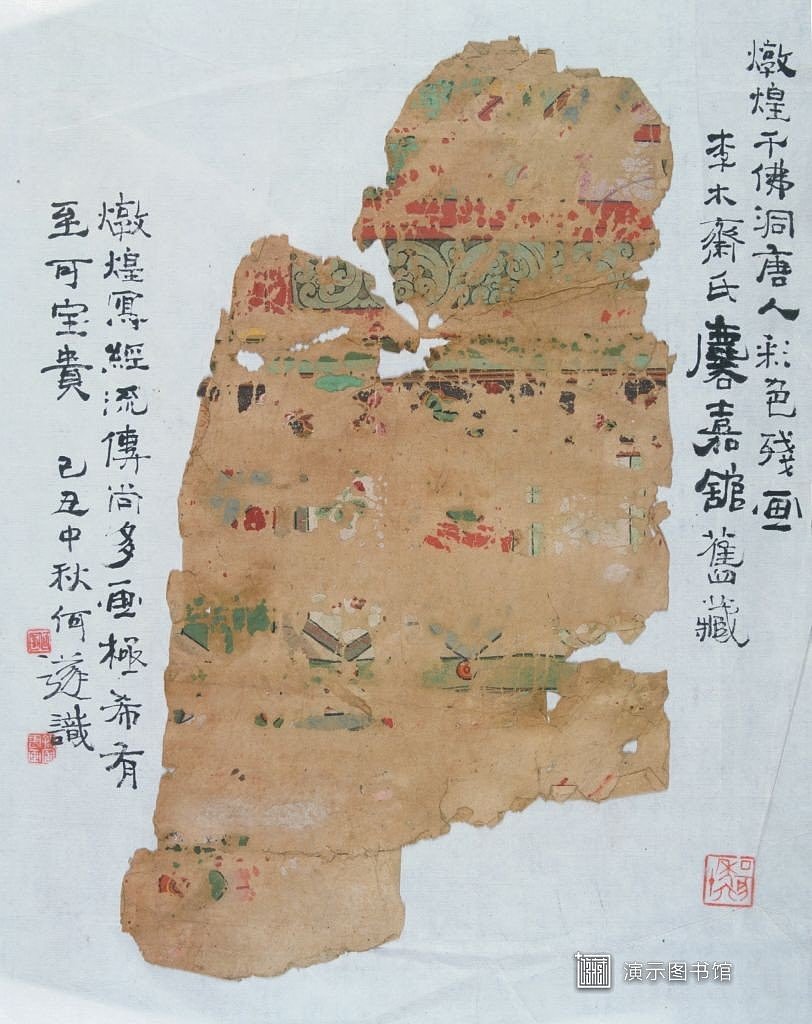 燉煌千佛洞唐人彩色殘画
李木齋氏麐嘉舘舊藏
燉煌寫經流傳尚多画極希有
至可宝貴 己丑中秋何遂識
演示图书馆